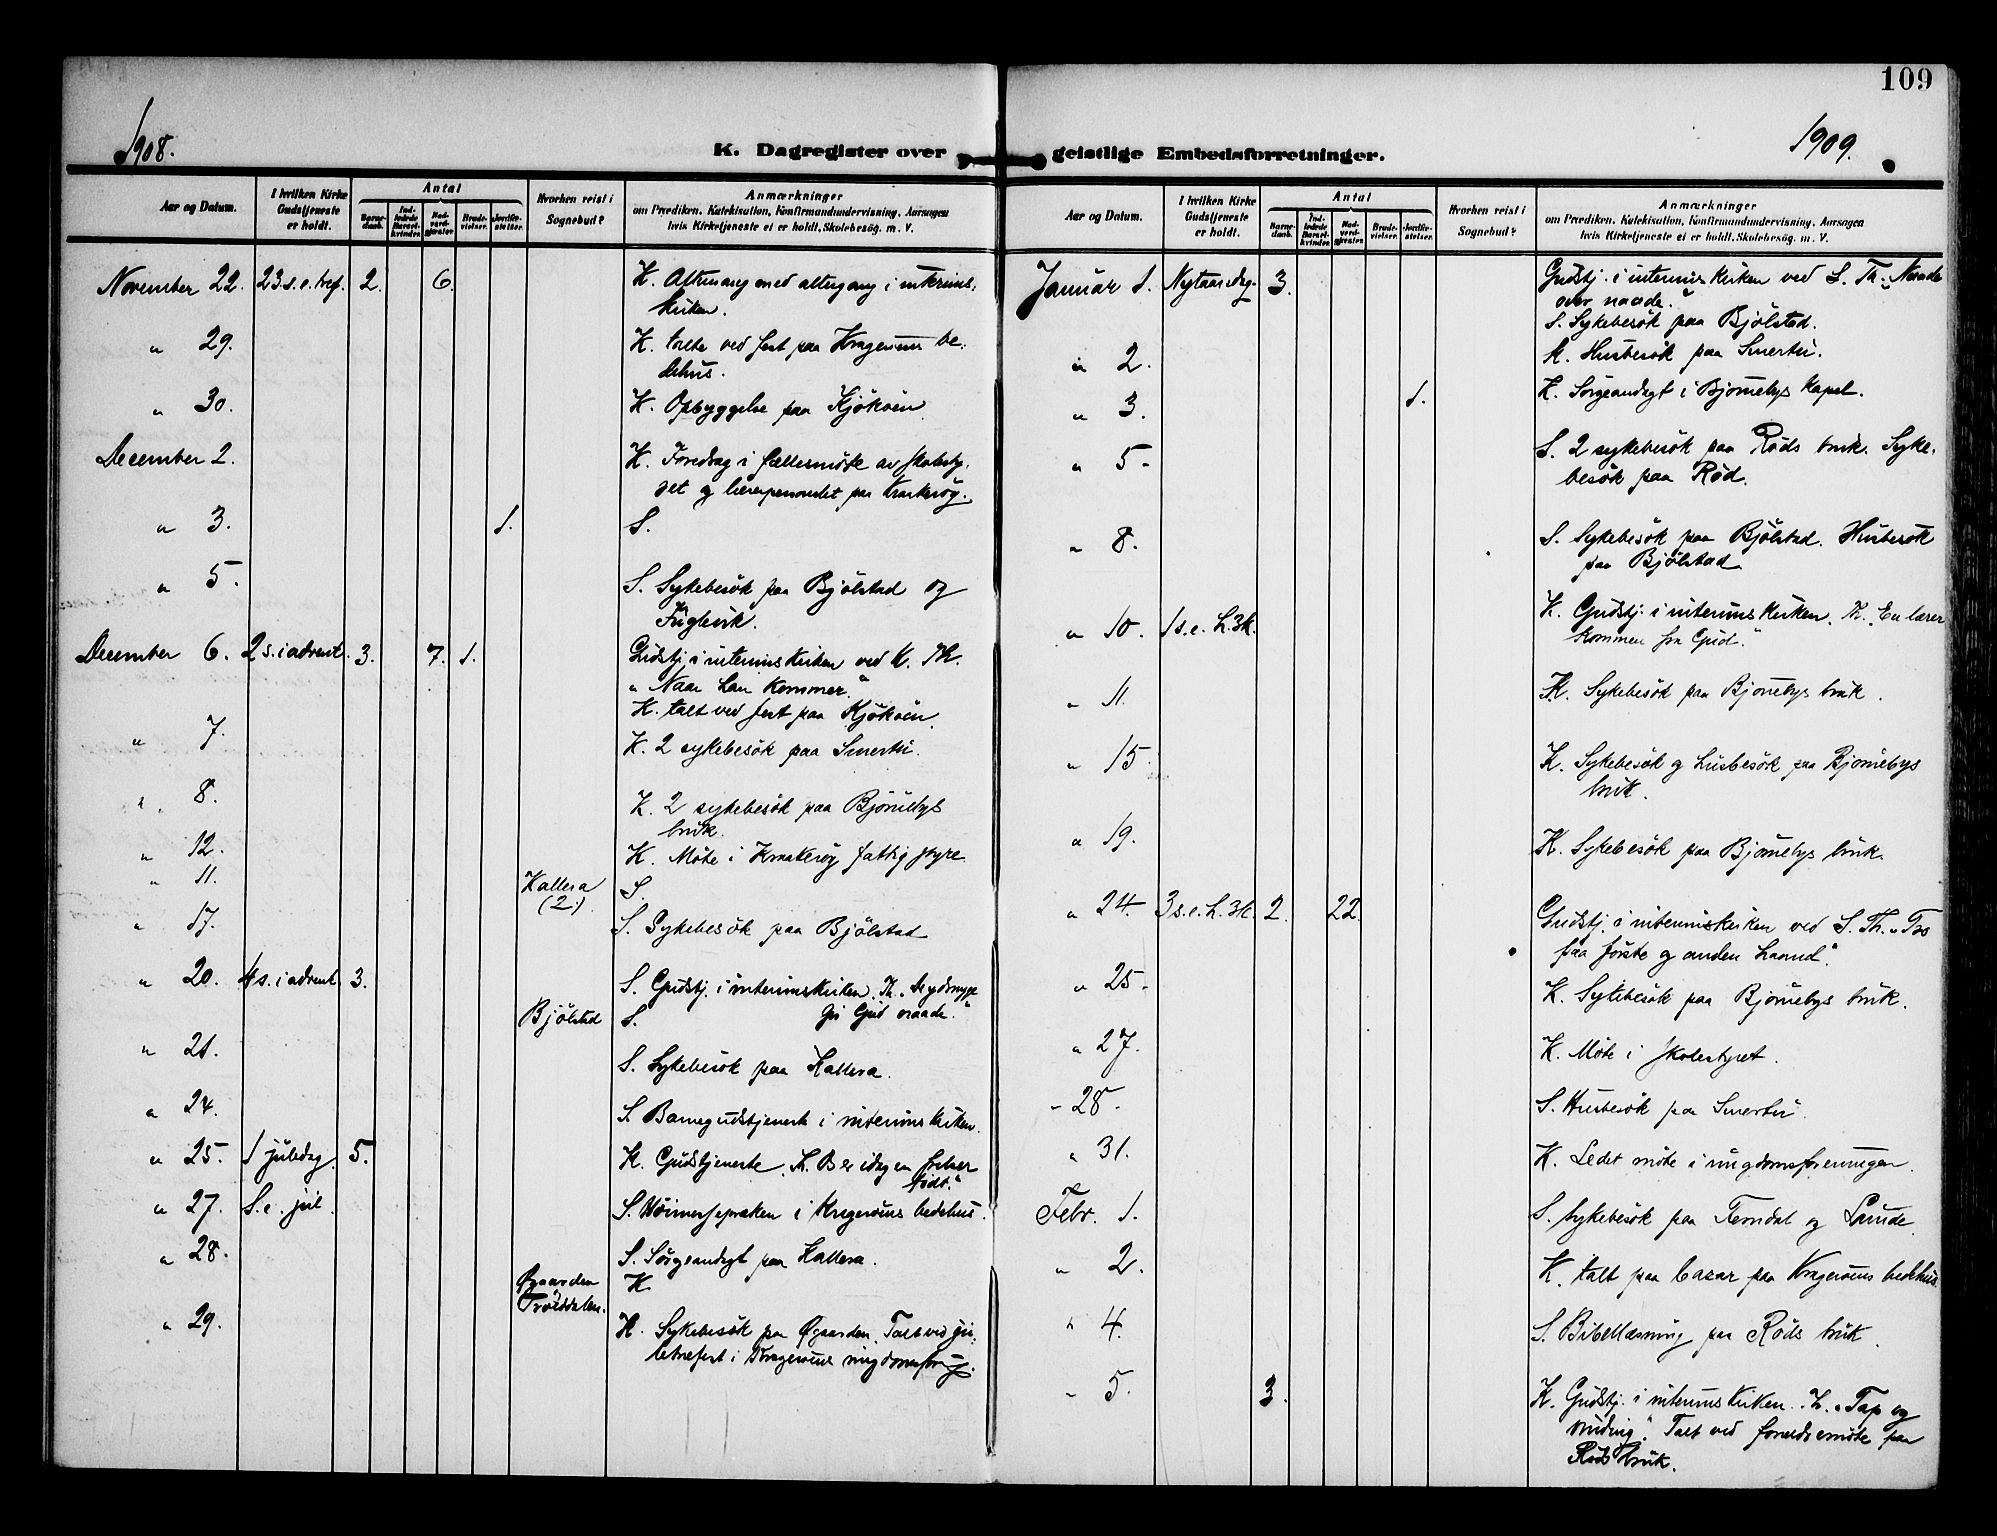 109
1908.
K. Dagregister over geistlige Embedsforretninger.
1909.
Aar og Datum.
I hvilken Kirke Gudstjeneste er holdt.
Antal
Barnedaab.
Indledede Barselkvinder.
Nadverdgjester.
Brudevielser.
Jordfæstelser.
Hvorhen reist i Sognebud?
Anmærkninger
om Prædiken, Katekisation, Konfirmandundervisning, Aarsagen
hvis Kirketjeneste ei er holdt, Skolebesög m. V.
November 22. 23. s. e. tref. 2. 6. K. Altergang i interims-
kirken.
" 29. K. talte ved fest paa Kragerøens be-
dehus.
" 30. K. Opbyggelse paa Kjøkøen
December 2. K. Foredrag i fællesmøte av skolesty-
ret og lærerpersonalet paa Kraakerøy.
" 3. 1. S.
" 5. S. Sykebesøk paa Bjølstad og
Fuglevik.
December 6. 2 s. i advent. 3. 7. 1. Gudstj. i interimskirken ved K. Th.
" Naar han kommer."
K. talt ved fest paa Kjøkøen.
" 7. K. 2 sykebesøk paa Smertu.
" 8. K. 2 sykebesøk paa Bjørnebys
bruk.
" 12. K. Møte i Kraakerøy fattigstyre
" 11. Kallera (2.) S.
" 17. S. Sykebesøk paa Bjølstad
" 20. 4 s. i advent. 3. S. Gudstj. i interimskirken. Th.
Gud naade."
Bjølstad S.
" 21. S. Sykebesøk paa Kallera.
" 24. S. Barnegudstjeneste i interimskirken.
" 25. 1 juledag 5. K. Gudstjeneste. Th. Der er idag en frelser
født."
" 27. S. e. jul. S. i Kragerøens bedehus.
" 28. S. Sørgeandagt paa Kallera.
Øgaarden K.
Trolddalen.
" 29. K. Sykebesøk paa Øgaarden. Talt ved ju-
letrefest i Kragerøens ungdomsforng.
Aar og Datum.
I hvilken Kirke Gudstjeneste er holdt.
Antal
Barnedaab.
Indledede Barselkvinder.
Nadverdgjester.
Brudevielser.
Jordfæstelser.
Hvorhen reist i Sognebud?
Anmærkninger
om Prædiken, Katekisation, Konfirmandundervisning, Aarsagen
hvis Kirketjeneste ei er holdt, Skolebesög m. V.
Januar 1. Nytaarsdag. 3. Gudstj. i interimskirken ved S. Th. " Naade
over naade."
S. Sykebesøk paa Bjølstad.
" 2. K. Husbesøk paa Smertu.
" 3. 1. K. Sørgeandagt i Bjørnebys kapel.
" 5. S. 2 sykebesøk paa Røds bruk. Syke-
besøk paa Rød.
" 8. S. Sykebesøk paa Bjølstad. Husbesøk
paa Bjølstad
" 10. 1 s. e. h. 3k. K. Gudstj. i interimskirken. Th. " En lærer
kommen fra Gud."
" 11. K. Sykebesøk paa Bjørnebys bruk.
" 15. K. Sykebesøk og husbesøk paa Bjørnebys
bruk.
" 19. K. Sykebesøk paa Bjørnebys bruk.
" 24. 3 s. e. h. 3k. 2. 22. Gudstj. i interimskirken ved S. Th. " Tro
paa første og anden haand".
" 25. K. Sykebesøk paa Bjørnebys bruk.
" 27. K. Møte i skolestyret.
" 28. S. Husbesøk paa Smertu.
" 31. K. Ledet møte i ungdomsforeningen.
Febr. 1. S. Sykebesøk paa Ferndal og Lunde.
" 2. K. talt paa basar paa Kragerøens bedehus.
" 4. S. Bibellæsning paa Røds bruk.
" 5. 3. K. Gudstj. i interimskirken. Th. " Tap og
vinding." Talt ved foreldremøte paa
Røds bruk.